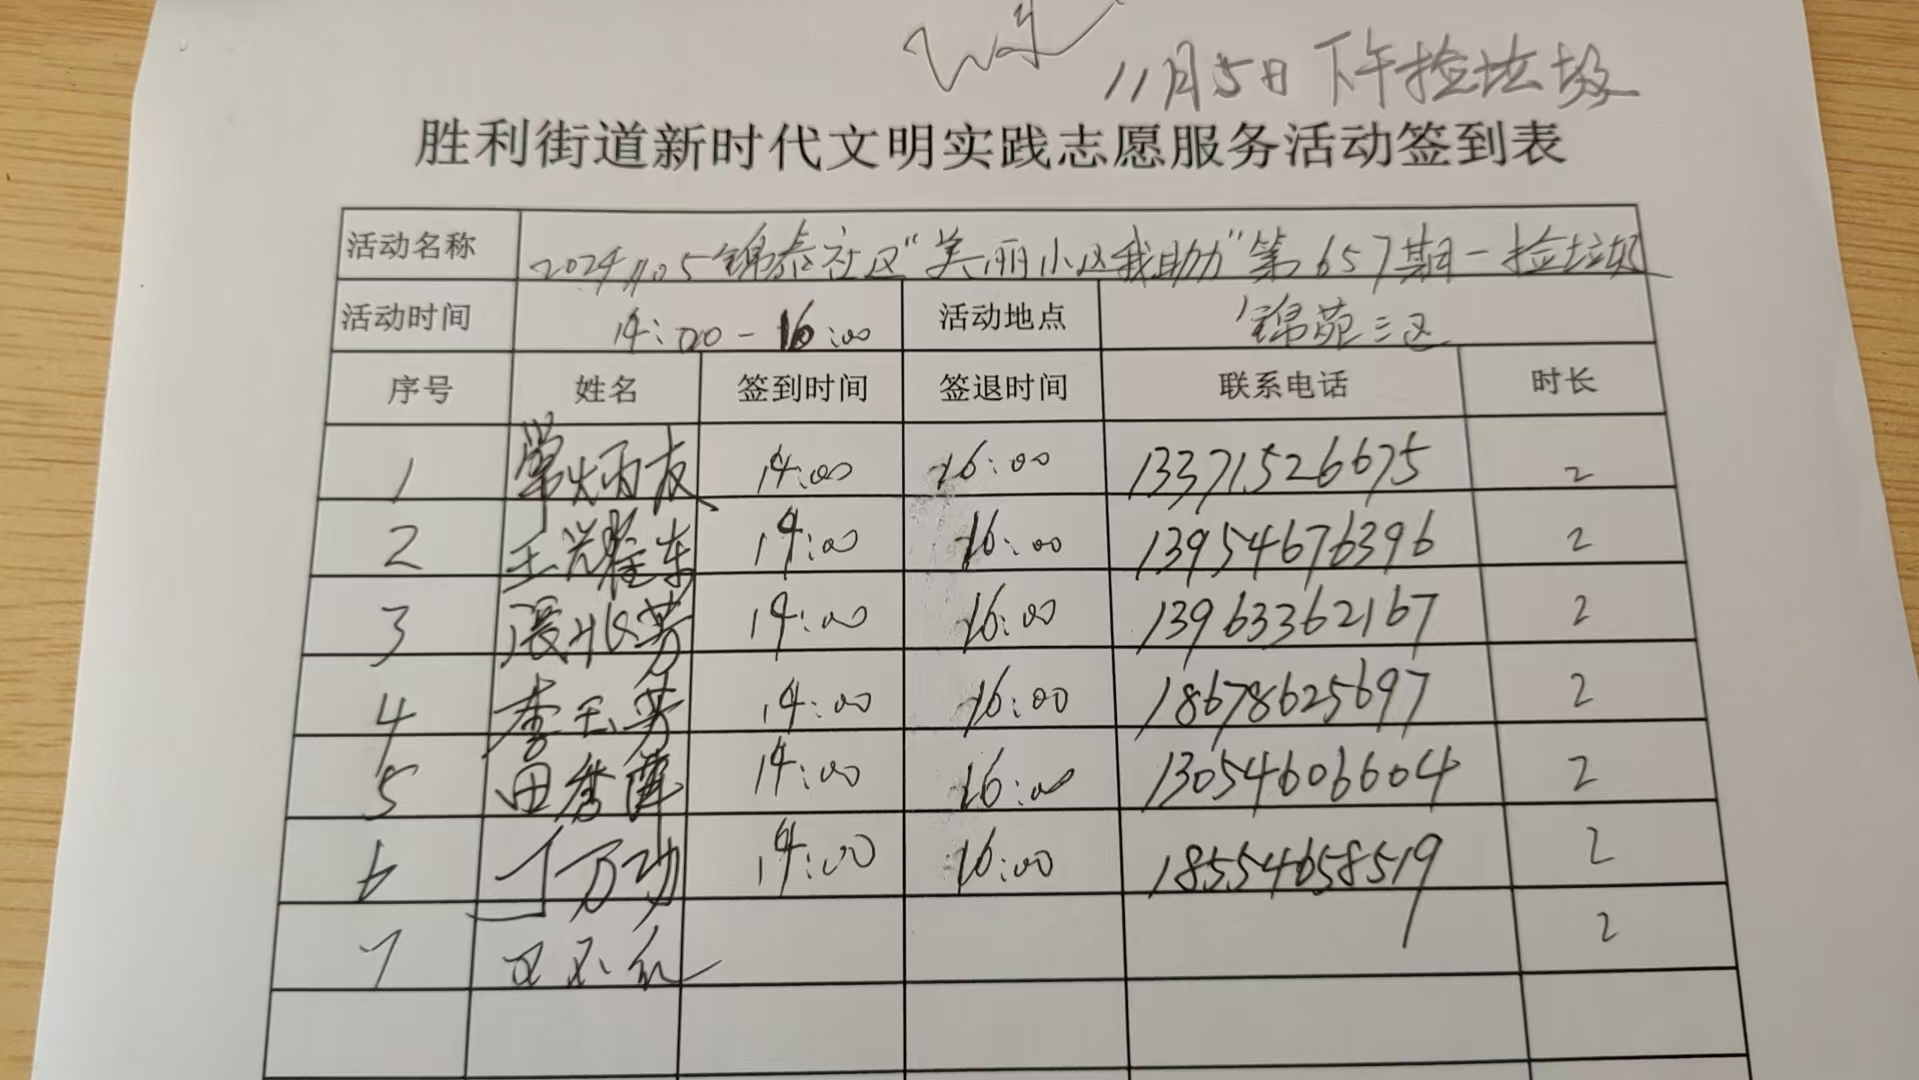 11月5日下午捡垃圾
胜利街道新时代文明实践志愿服务活动签到表
活动名称 2024.11.05锦泰社区“美丽小区我助力”第657期-捡垃圾
活动时间 14:00-16:00 活动地点 锦苑三区
序号 姓名 签到时间 签退时间 联系电话 时长
1 常炳友 14:00 16:00 13371526675 2
2 王耀东 14:00 16:00 13954676396 2
3 张秋芳 14:00 16:00 13963362167 2
4 李玉芳 14:00 16:00 18678625697 2
5 田秀莲 14:00 16:00 13054606604 2
6 丁万功 14:00 16:00 18554658519 2
7 2